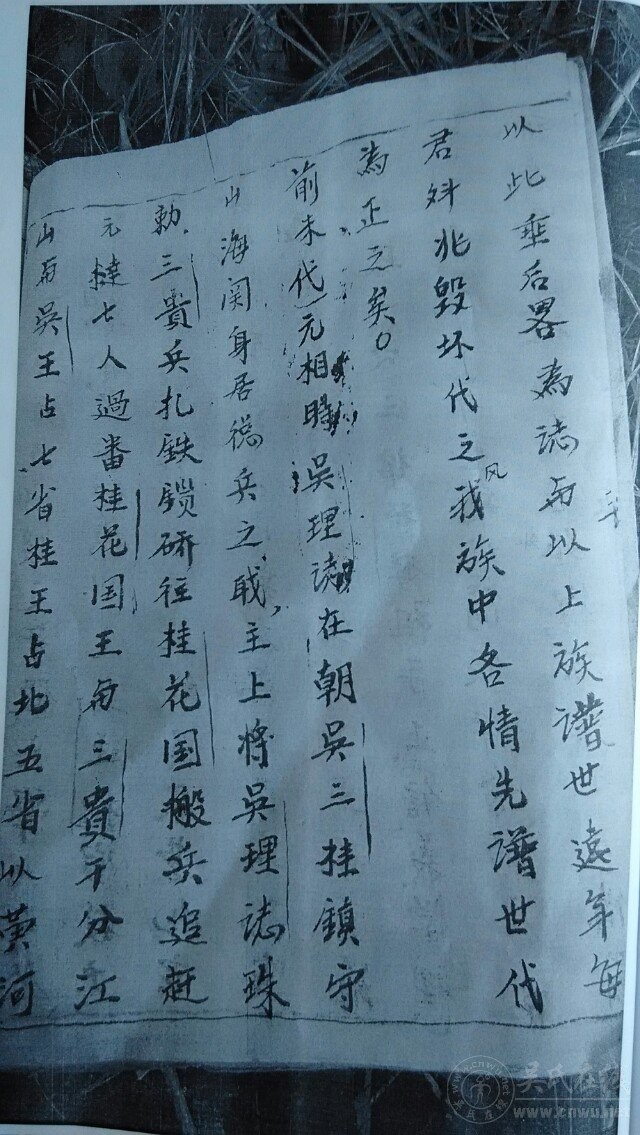 以此垂后畧為誌与以上族譜世遠年每
君斜兆毀坏代之我风族中各情先譜世代
為正之矣。
前末代元相時吳理誌在朝吳三桂鎮守
山海関身居總兵之戝，主上将吳理誌珠
勅三貴兵扎铁鎖研往桂花国搬兵追赶
元撻七人過番桂花国王与三貴干分江
山与吳王占七省桂王占北五省以黄河
吴氏在线
www.cnwu.net